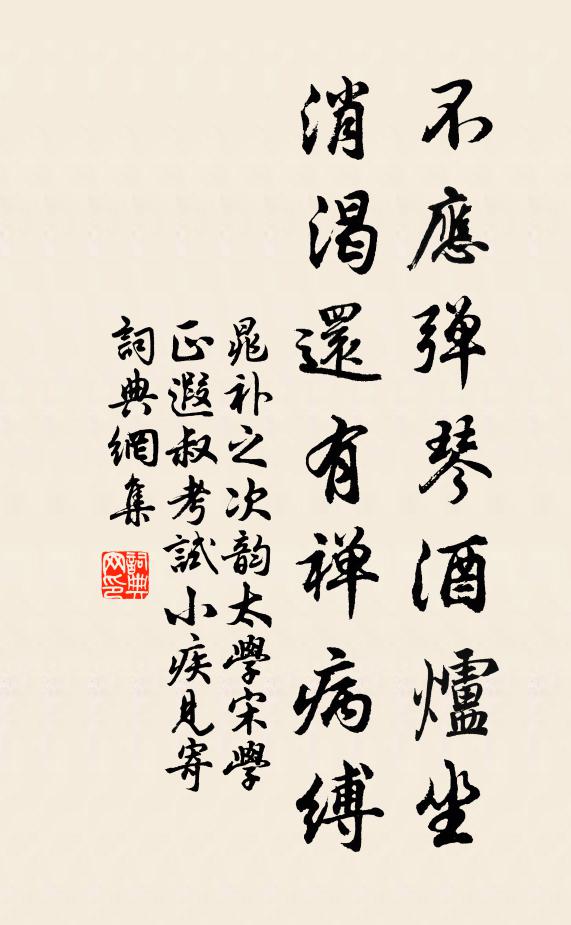 不應弹琴酒爐坐
消渴還有禅病縛
晁补之次韵太學宋學
正遐叔考試小疾見寄
詞典網集
詞典網印